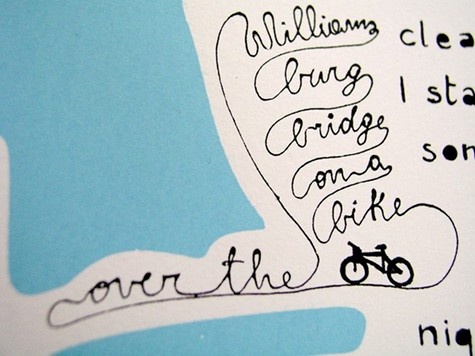 over the
Williams
burg
bridge
on a
bike
clea
I sta
son
niq